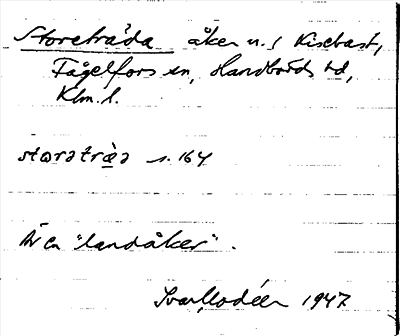 Storeträda åker n. Kisebast,
Fågelfors sn, Handbörds hd,
Klm. l.
storaträa s. 164
Är en "landåker".
Ivar Modéer 1947